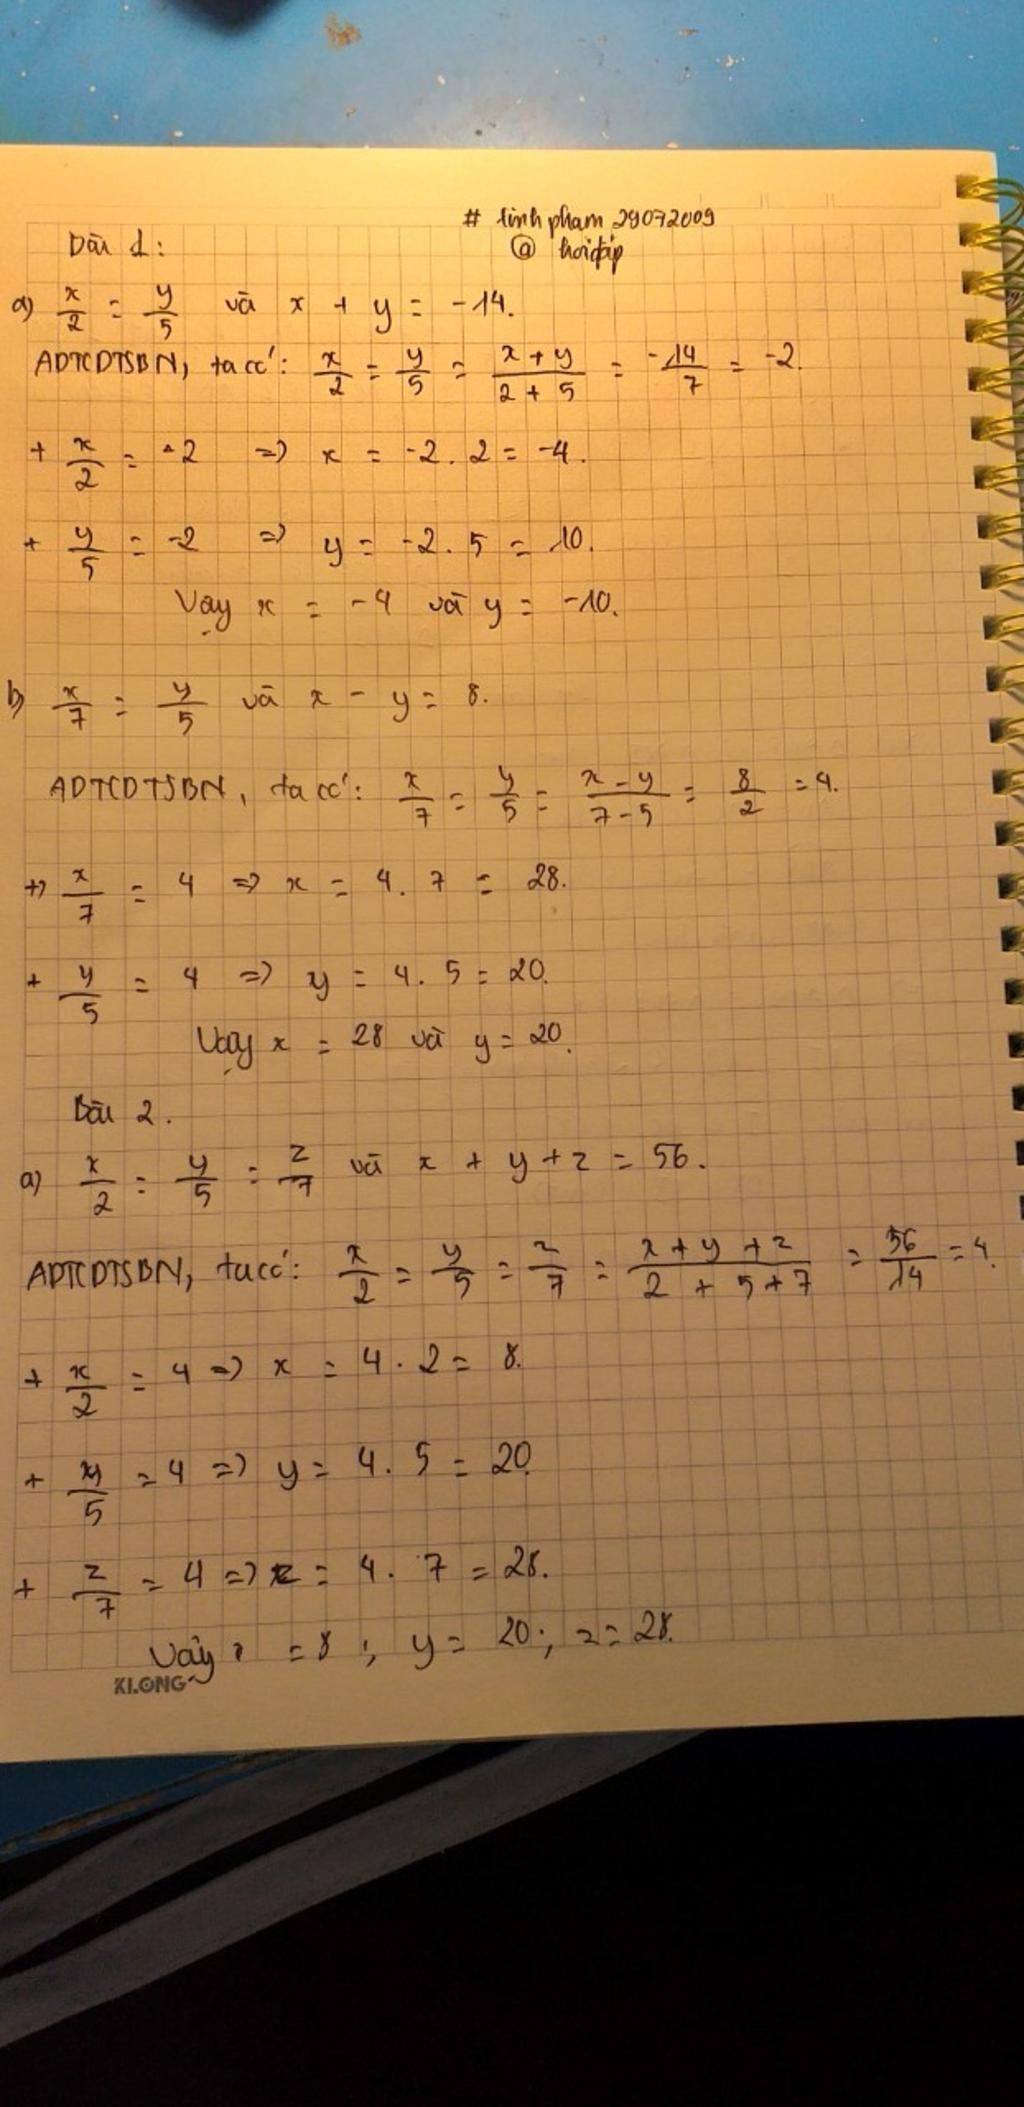 # linhpham29072009
Bài 1:
@ hoidap
a) x/2 = y/5 và x + y = -14.
ADTCDTSBN, ta có: x/2 = y/5 = (x+y)/(2+5) = -14/7 = -2.
+ x/2 = -2 => x = -2.2 = -4.
+ y/5 = -2 => y = -2.5 = 10.
Vậy x = -4 và y = -10.
b) x/7 = y/5 và x - y = 8.
ADTCDTSBN, ta có: x/7 = y/5 = (x-y)/(7-5) = 8/2 = 4.
+) x/7 = 4 => x = 4.7 = 28.
+ y/5 = 4 => y = 4.5 = 20.
Vậy x = 28 và y = 20.
Bài 2.
a) x/2 = y/5 = z/7 và x + y + z = 56.
ADTCDTSBN, ta có: x/2 = y/5 = z/7 = (x+y+z)/(2+5+7) = 56/14 = 4.
+ x/2 = 4 => x = 4.2 = 8.
+ y/5 = 4 => y = 4.5 = 20.
+ z/7 = 4 => z = 4.7 = 28.
Vậy x = 8; y = 20; z = 28.
KLONG